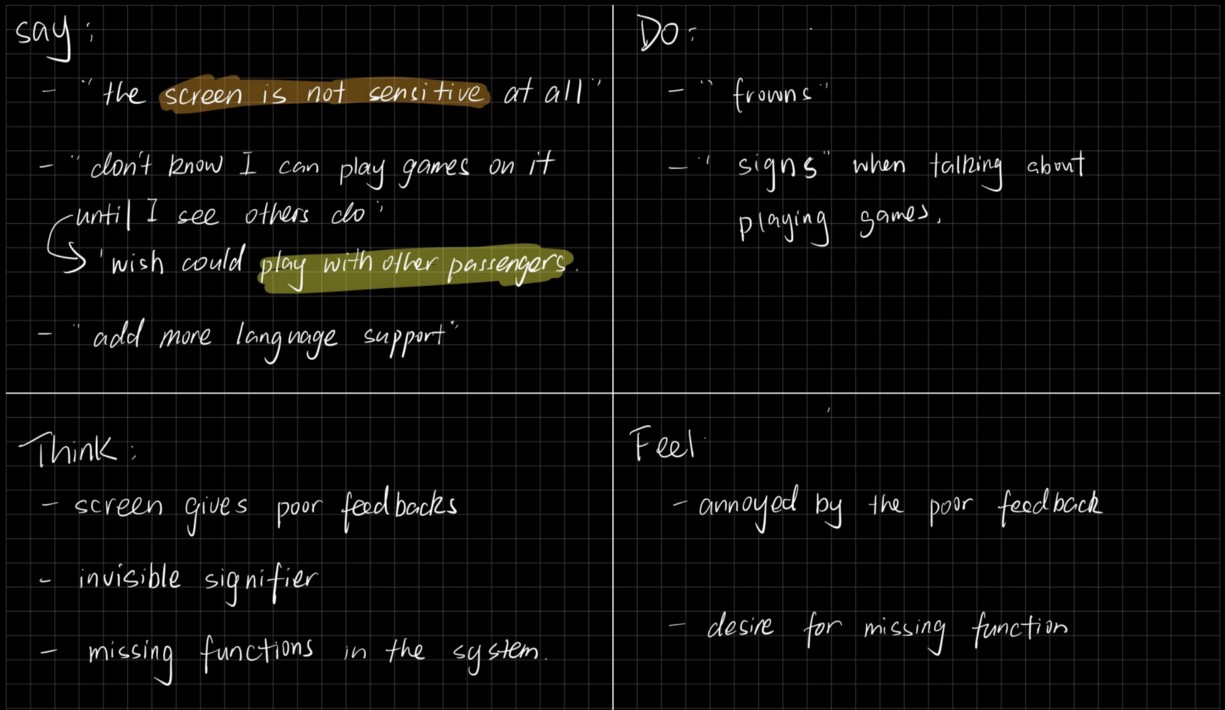 say:
- "the screen is not sensitive at all"
- "don't know I can play games on it
until I see others do"
'wish could play with other passengers.
- "add more language support"
Do:
- "frowns"
- "signs" when talking about
playing games.
Think:
- screen gives poor feedbacks
- invisible signifier
- missing functions in the system.
Feel
- annoyed by the poor feedback
- desire for missing function